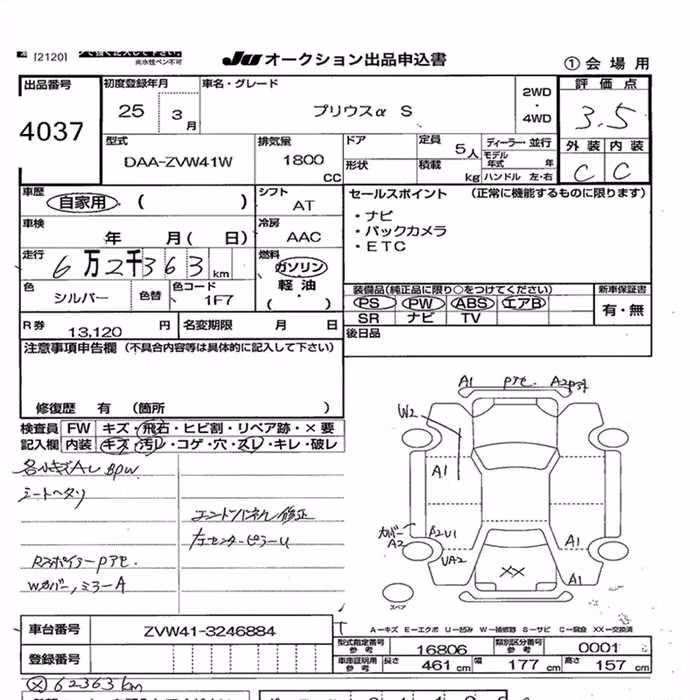 [2120]
尚水性ペン不可
Ju オークション出品申込書
①会場用
出品番号
4037
初度登録年月
25 3月
車名・グレード
プリウスα S
2WD
・
4WD
評価点
3.5
型式
DAA-ZVW41W
排気量
1800
CC
ドア
形状
定員
5人
積載
kg
ディーラー・並行
モデル年式 年
ハンドル 左・右
外装 内装
C C
車歴
自家用 ・ ( )
シフト
AT
セールスポイント (正常に機能するものに限ります)
・ナビ
・バックカメラ
・ETC
車検
年 月( 日)
冷房
AAC
走行
6万2千363km
燃料
ガソリン
軽油
・( )
色
シルバー
色替
色コード
1F7
装備品(純正品に限り○をつけてください)
PS PW ABS エアB
SR ナビ TV
新車保証書
有・無
R券
13,120 円
名変期限 月 日
後日品
注意事項申告欄 (不具合内容等は具体的に記入して下さい)
修復歴 有 (箇所 )
検査員
記入欄
FW キズ・飛石・ヒビ割・リペア跡・×要
内装 キズ・汚レ・コゲ・穴・スレ・キレ・破レ
各小キズAレ BPW
シートヘタリ
エンドパネル修正
左センターピラーU
RスポイラーPアセ
Wカバー,ミラーA
A1 Pアセ A2
W2
A1
カバー
A2
A2U1
UA2
A1
XX
A1
スペア
A－キズ E－エクボ U－凹み W－補修跡 S－サビ C－腐食 XX－交換済
車台番号
ZVW41-3246884
登録番号
型式指定番号
参考
16806
類別区分番号
参考
0001
車庫証明用
参考
長さ 461cm
幅 177cm
高さ 157cm
Ⓧ62363km